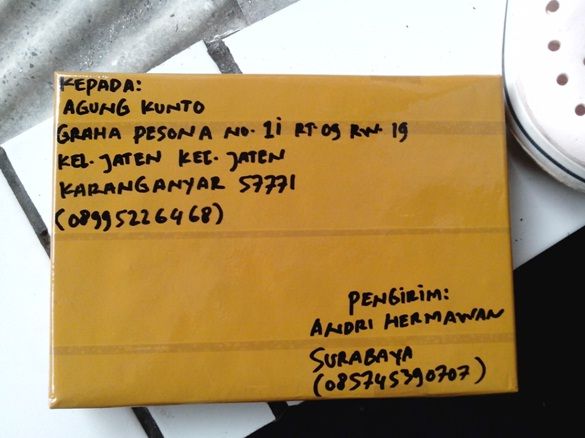 KEPADA:
AGUNG KUNTO
GRAHA PESONA NO. 1i RT.09 RW. 19
KEL. JATEN KEC. JATEN
KARANGANYAR 57771
(08995226468)
PENGIRIM:
ANDRI HERMAWAN
SURABAYA
(085745390707)